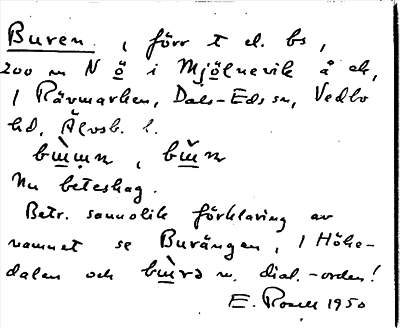 Buren, förr t el. bs,
200 m N ö i Mjölnevik å ek,
/ Rävmarken, Dals-Eds sn, Vedbo
hd, Älvsb. l.
Nu beteshag.
Betr. sannolik förklaring av
namnet se Burängen, / Höke-
dalen och dial.-orden!
E. Rosell 1950